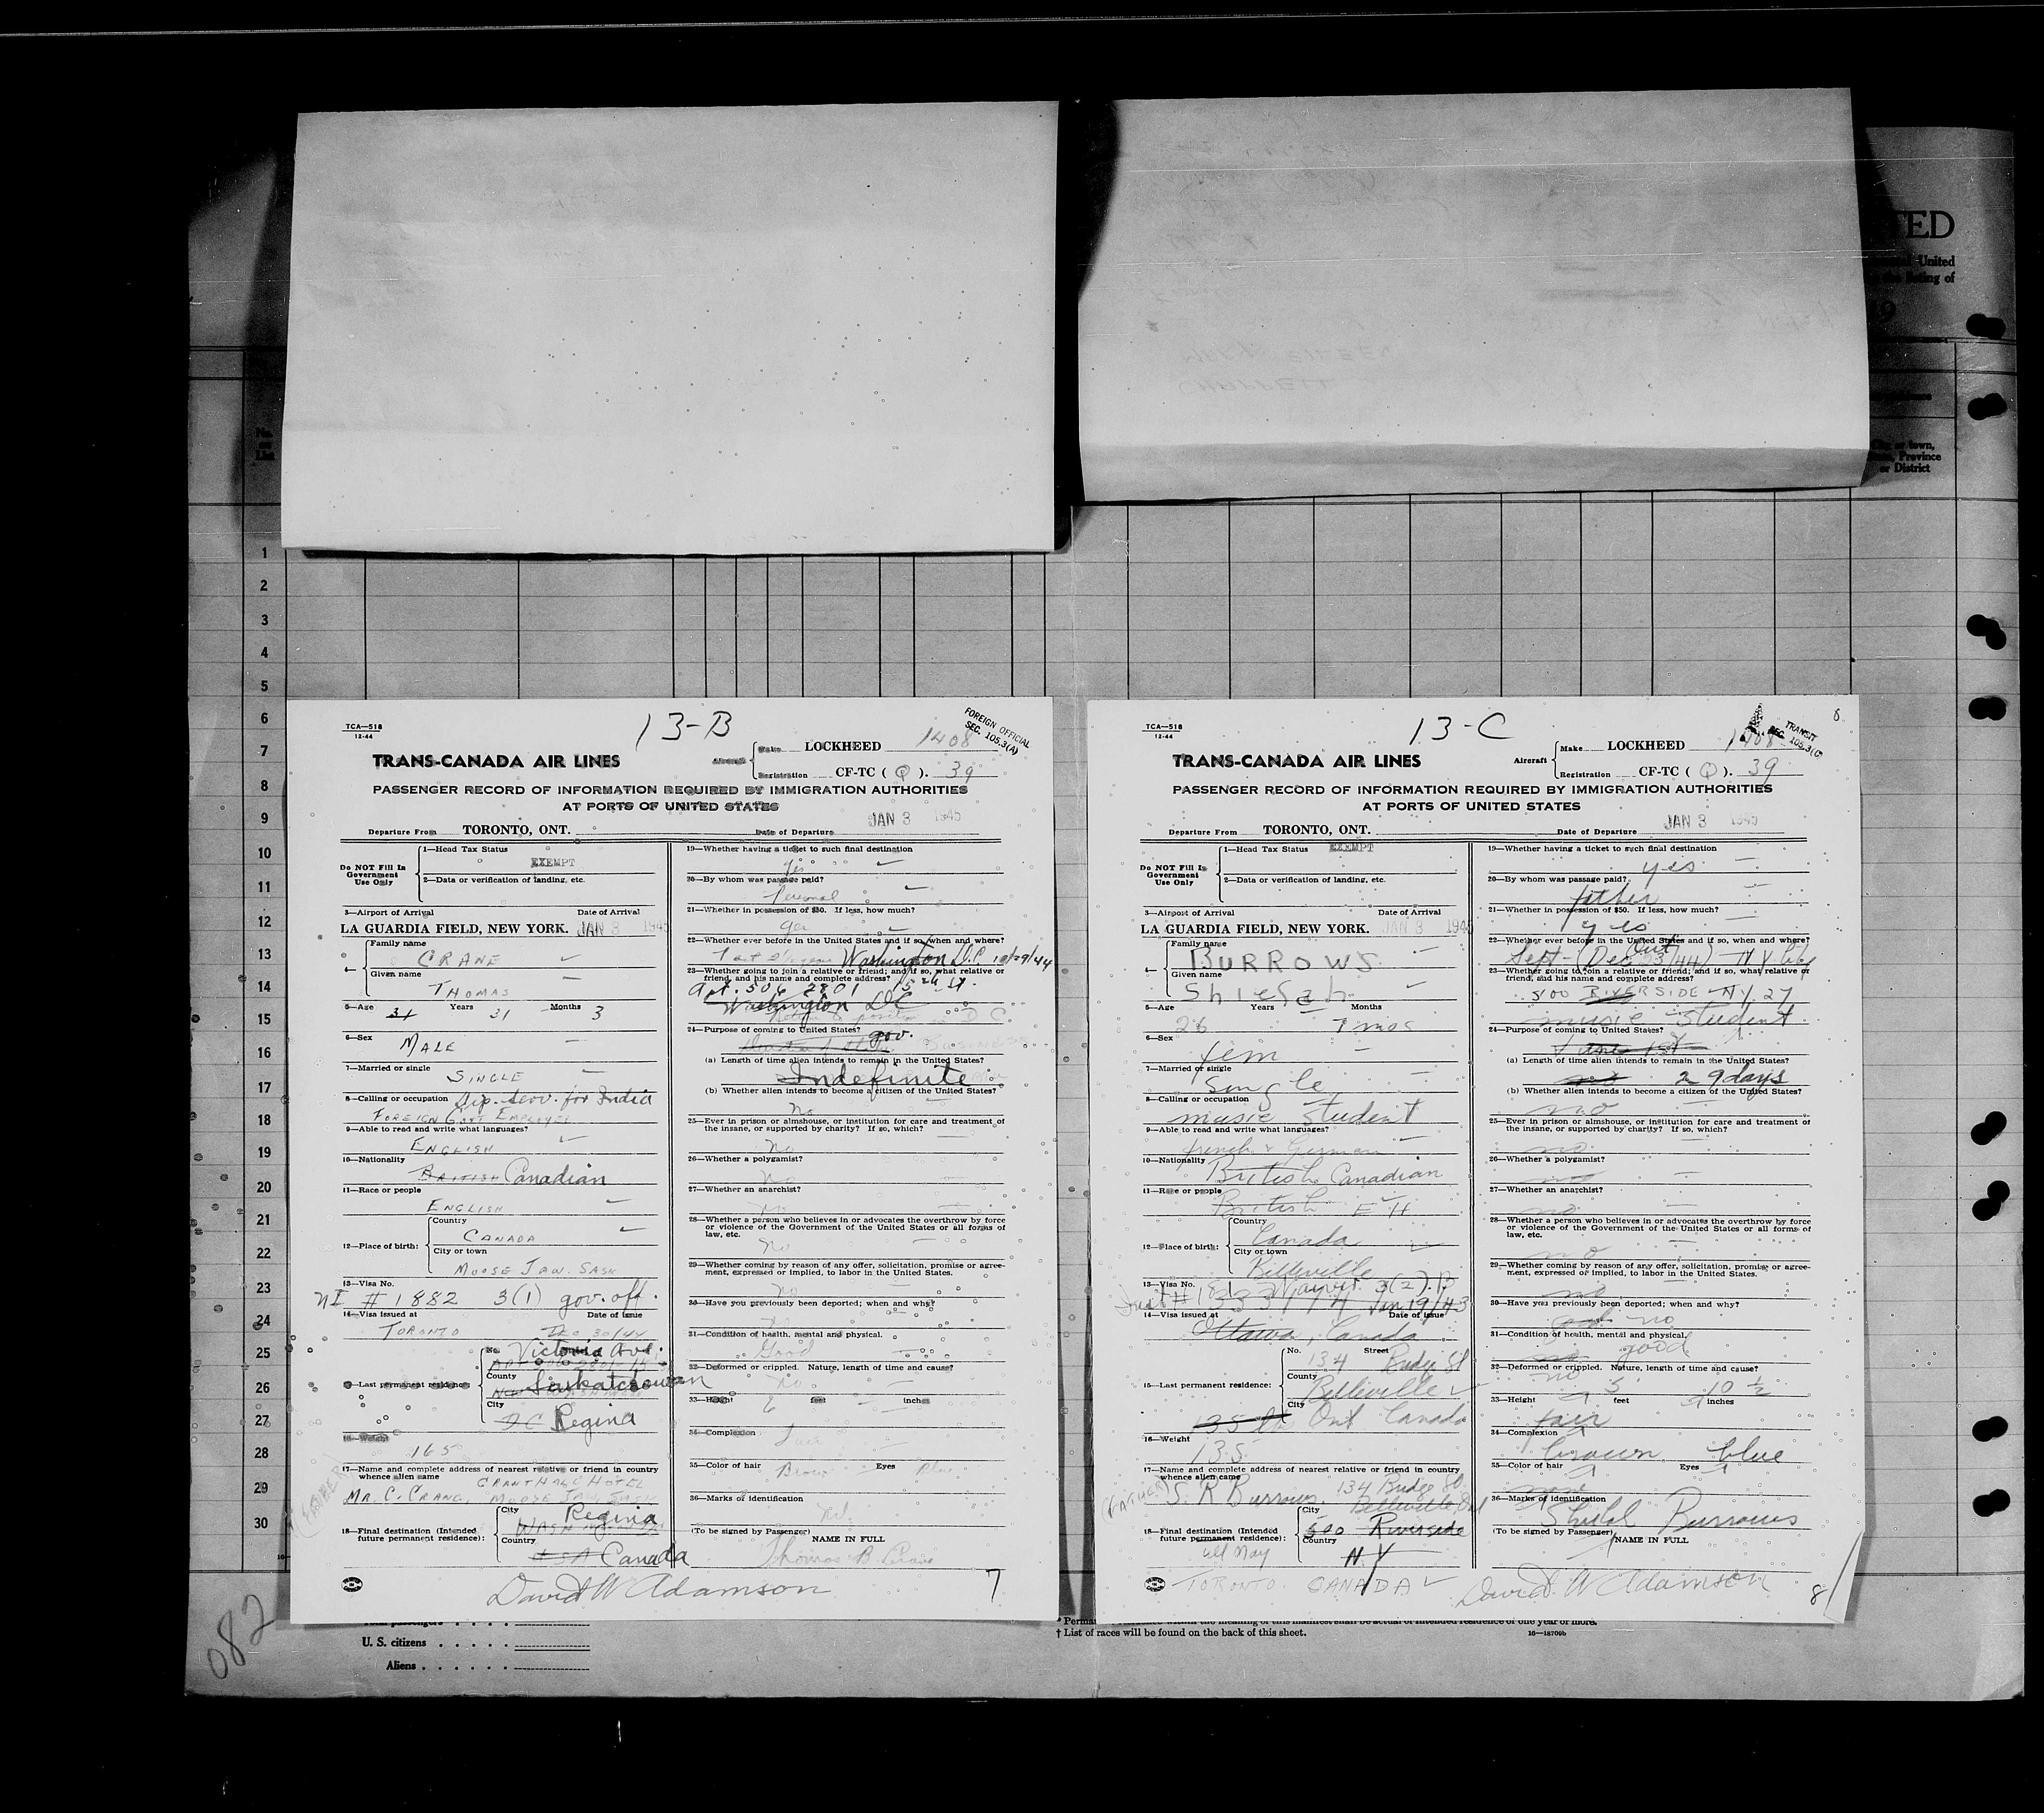 TED
United
the listing of
City or town,
Province
or District
1
2
3
4
5
6
7
8
9
10
11
12
13
14
15
16
17
18
19
20
21
22
23
24
25
26
27
28
29
30
13-B
TCA—518
12-44
FOREIGN OFFICIAL
SEC. 105.3(A)
TRANS-CANADA AIR LINES
Aircraft
Make LOCKHEED 1408
Registration CF-TC ( Q ). 39
PASSENGER RECORD OF INFORMATION REQUIRED BY IMMIGRATION AUTHORITIES
AT PORTS OF UNITED STATES
Departure From TORONTO, ONT. Date of Departure JAN 3 1945
Do NOT Fill In
Government
Use Only
1—Head Tax Status
EXEMPT
2—Data or verification of landing, etc.
3—Airport of Arrival Date of Arrival
LA GUARDIA FIELD, NEW YORK. JAN 3 1945
4—
Family name
CRANE
Given name
THOMAS
5—Age 31 Years 31 Months 3
6—Sex
MALE
7—Married or single
SINGLE
8—Calling or occupation Dip. Serv. for India
FOREIGN GOVT EMPLOYEE
9—Able to read and write what languages?
ENGLISH
10—Nationality
BRITISH Canadian
11—Race or people
ENGLISH
12—Place of birth:
Country
CANADA
City or town
MOOSE JAW. SASK
13—Visa No.
NI # 1882 3(1) gov. off.
14—Visa issued at Date of Issue
TORONTO Dec 30/44
15—Last permanent residence:
No. Victoria Ave.
County
Saskatchewan
City
DC Regina
16—Weight
165
17—Name and complete address of nearest relative or friend in country
whence alien came GRANT HALL HOTEL
MR. C. CRANE, MOOSE JAW SASK
(FATHER)
18—Final destination (Intended
future permanent residence):
City
Regina
WASH
Country
USA Canada
19—Whether having a ticket to such final destination
yes
20—By whom was passage paid?
Personal
21—Whether in possession of $50. If less, how much?
yes
22—Whether ever before in the United States and if so, when and where?
Washington D.C. 12/29/44
23—Whether going to join a relative or friend; and if so, what relative or
friend, and his name and complete address?
Apt. 506 2801 15th St.
Washington DC
24—Purpose of coming to United States? gov.
Business
(a) Length of time alien intends to remain in the United States?
Indefinite
(b) Whether alien intends to become a citizen of the United States?
No
25—Ever in prison or almshouse, or institution for care and treatment of
the insane, or supported by charity? If so, which?
No
26—Whether a polygamist?
No
27—Whether an anarchist?
No
28—Whether a person who believes in or advocates the overthrow by force
or violence of the Government of the United States or all forms of
law, etc.
No
29—Whether coming by reason of any offer, solicitation, promise or agree-
ment, expressed or implied, to labor in the United States.
No
30—Have you previously been deported; when and why?
31—Condition of health, mental and physical.
Good
32—Deformed or crippled. Nature, length of time and cause?
No
33—Height 6 feet inches
34—Complexion
35—Color of hair Brown Eyes Blue
36—Marks of identification
Nil.
(To be signed by Passenger) NAME IN FULL
Thomas B. Crane
David W Adamson
7
13-C
TCA—518
12-44
8
TRANSIT
SEC. 105.3(C)
TRANS-CANADA AIR LINES
Aircraft
Make LOCKHEED 1408
Registration CF-TC ( Q ). 39
PASSENGER RECORD OF INFORMATION REQUIRED BY IMMIGRATION AUTHORITIES
AT PORTS OF UNITED STATES
Departure From TORONTO, ONT. Date of Departure JAN 3 1945
Do NOT Fill In
Government
Use Only
1—Head Tax Status EXEMPT
2—Data or verification of landing, etc.
3—Airport of Arrival Date of Arrival
LA GUARDIA FIELD, NEW YORK. JAN 3 1945
4—
Family name
BURROWS
Given name
Shielah
5—Age Years Months
26 7 mos
6—Sex
fem
7—Married or single
Single
8—Calling or occupation
music student
9—Able to read and write what languages?
french & German
10—Nationality
British Canadian
11—Race or people
British
12—Place of birth:
Country
Canada
City or town
Belleville
13—Visa No.
3(2).
Jan 19/43
14—Visa issued at Date of Issue
Ottawa, Canada
15—Last permanent residence:
No. Street
134 Bridge St
County
Belleville
City
135 lb Ont Canada
16—Weight
135
17—Name and complete address of nearest relative or friend in country
whence alien came
(FATHER) S. R Burrows 134 Bridge St
Belleville, Ont
18—Final destination (Intended
future permanent residence):
till May
City
500 Riverside
Country
N.Y
TORONTO CANADA
19—Whether having a ticket to such final destination
yes
20—By whom was passage paid?
father
21—Whether in possession of $50. If less, how much?
yes
22—Whether ever before in the United States and if so, when and where?
Sept - (Dec 23/44) - N Y City
23—Whether going to join a relative or friend; and if so, what relative or
friend, and his name and complete address?
500 RIVERSIDE - N.Y. 27
music student
24—Purpose of coming to United States?
June 1st
(a) Length of time alien intends to remain in the United States?
no 29 days
(b) Whether alien intends to become a citizen of the United States?
no
25—Ever in prison or almshouse, or institution for care and treatment of
the insane, or supported by charity? If so, which?
no
26—Whether a polygamist?
no
27—Whether an anarchist?
no
28—Whether a person who believes in or advocates the overthrow by force
or violence of the Government of the United States or all forms of
law, etc.
no
29—Whether coming by reason of any offer, solicitation, promise or agree-
ment, expressed or implied, to labor in the United States.
no
30—Have you previously been deported; when and why?
no
31—Condition of health, mental and physical.
good
32—Deformed or crippled. Nature, length of time and cause?
no
5 10 ½
33—Height feet inches
fair
34—Complexion
brown blue
35—Color of hair Eyes
none
36—Marks of identification
Shielah Burrows
(To be signed by Passenger) NAME IN FULL
David W Adamson
8
082
U. S. citizens
Aliens
† List of races will be found on the back of this sheet.
16—18709b